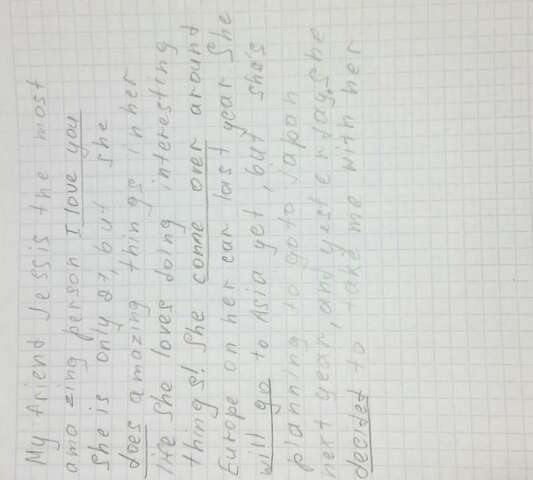 My friend Jess is the most
amazing person I love you
She is only 27, but she
does amazing things in her
life She loves doing interesting
things! She conne over around
Europe on her car last year She
will go to Asia yet, but she's
planning to go to Japan
next year, and yesterday, she
decidet to take me with her